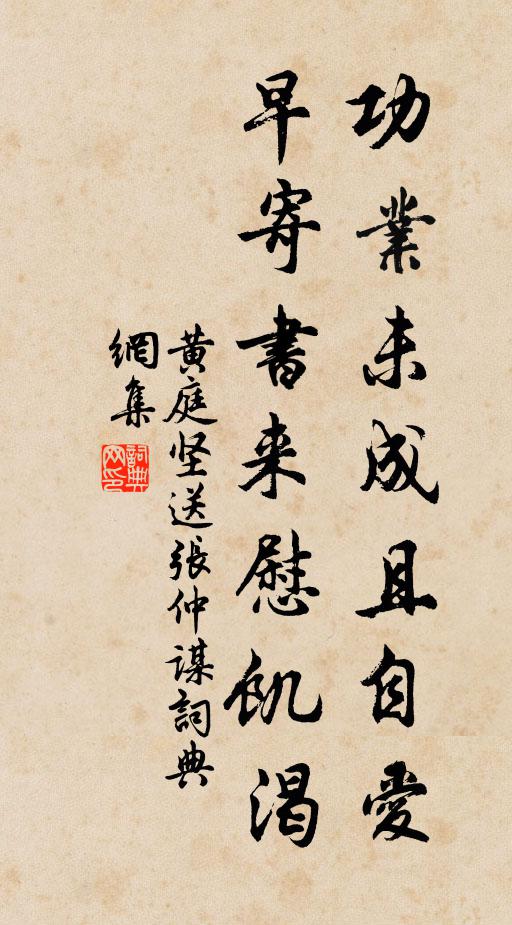 功業未成且自愛
早寄書来慰飢渴
黄庭坚送張仲謀詞典
網集
詞典
网印